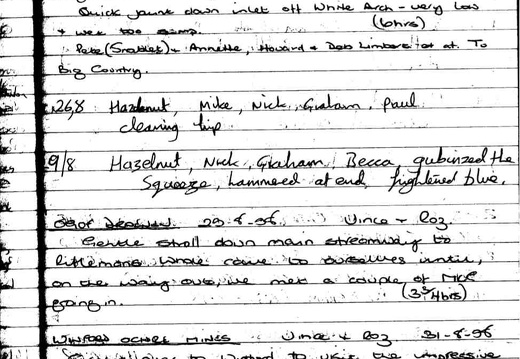 Quick jaunt down inlet off White Arch - very low
+ wet too (6hrs)
Pete (Snablet) + Annette, Howard + Deb Limbert et al. To
Big Country.
26/8 Hazelnut, Mike, Nick, Graham, Paul
clearing trip
9/8 Hazelnut, Nick, Graham, Becca, the
Squeeze, hammered at end, frightened blue.
29-8-96. Vince + Roz
Gentle stroll down main streamway to
Rifleman's Whole came to ourselves until,
on the way out, we met a couple of
going in. (3¾ Hrs)
WINFORD OCHRE MINES Vince + Roz 31-8-96
to to visit the impressive